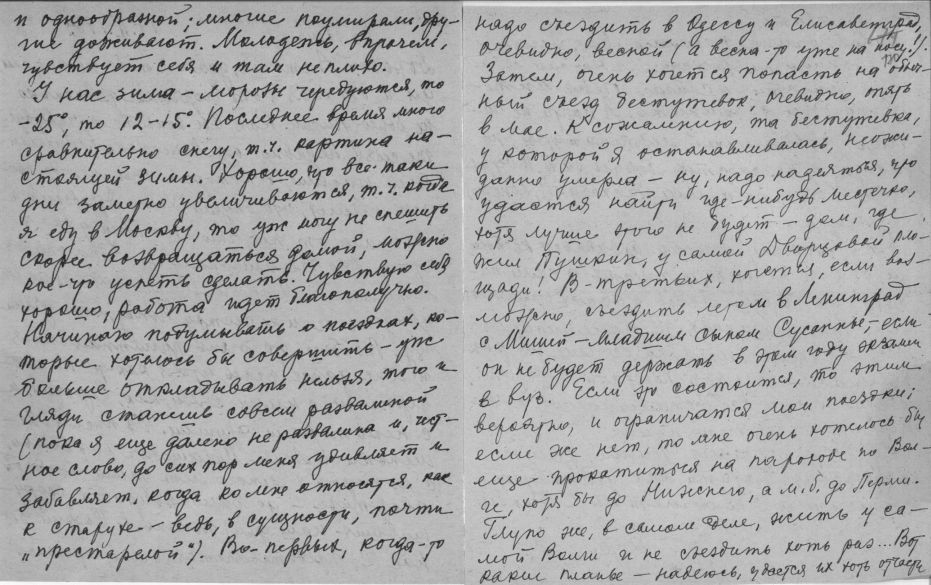 и однообразной; многие поумирали, дру-
гие доживают. Молодежь, впрочем,
чувствует себя и там неплохо.
У нас зима – морозы чередуются, то
-25°, то 12-15°. Последнее время много
сравнительно снегу, т.ч. картина на-
стоящей зимы. Хорошо, что все-таки
дни заметно увеличиваются, т.ч. когда
я еду в Москву, то уж могу не спешить
скорее возвращаться домой, можно
кое-что успеть сделать. Чувствую себя
хорошо, работа идет благополучно.
Начинаю подумывать о поездках, ко-
торые хотелось бы совершить – уж
больше откладывать нельзя, того и
гляди станешь совсем развалиной
(пока я еще далеко не развалина и, чест-
ное слово, до сих пор меня удивляет и
забавляет, когда ко мне относятся, как
к старухе – ведь, в сущности, почти
"престарелой"). Во-первых, когда-то
надо съездить в Одессу и Елисаветград,
очевидно, весной (а весна-то уже на носу!).
Затем, очень хочется попасть на обыч-
ный съезд бестужевок, очевидно, опять
в мае. К сожалению, та бестужевка,
у которой я останавливалась, неожи-
данно умерла – ну, надо надеяться, что
удастся найти где-нибудь местечко,
хотя лучше этого не будет – дом, где
жил Пушкин, у самой Дворцовой пло-
щади! В-третьих, хочется, если воз-
можно, съездить летом в Ленинград
с Мишей – младшим сыном Сусанны – если
он не будет держать в этом году экзамен
в вуз. Если это состоится, то этим
вероятно, и ограничатся мои поездки;
если же нет, то мне очень хотелось бы
еще прокатиться на пароходе по Вол-
ге, хотя бы до Нижнего, а м.б. до Перми.
Глупо же, в самом деле, жить у са-
мой Волги и не съездить хоть раз... Вот
какие планы – надеюсь, удастся их хоть отчасти